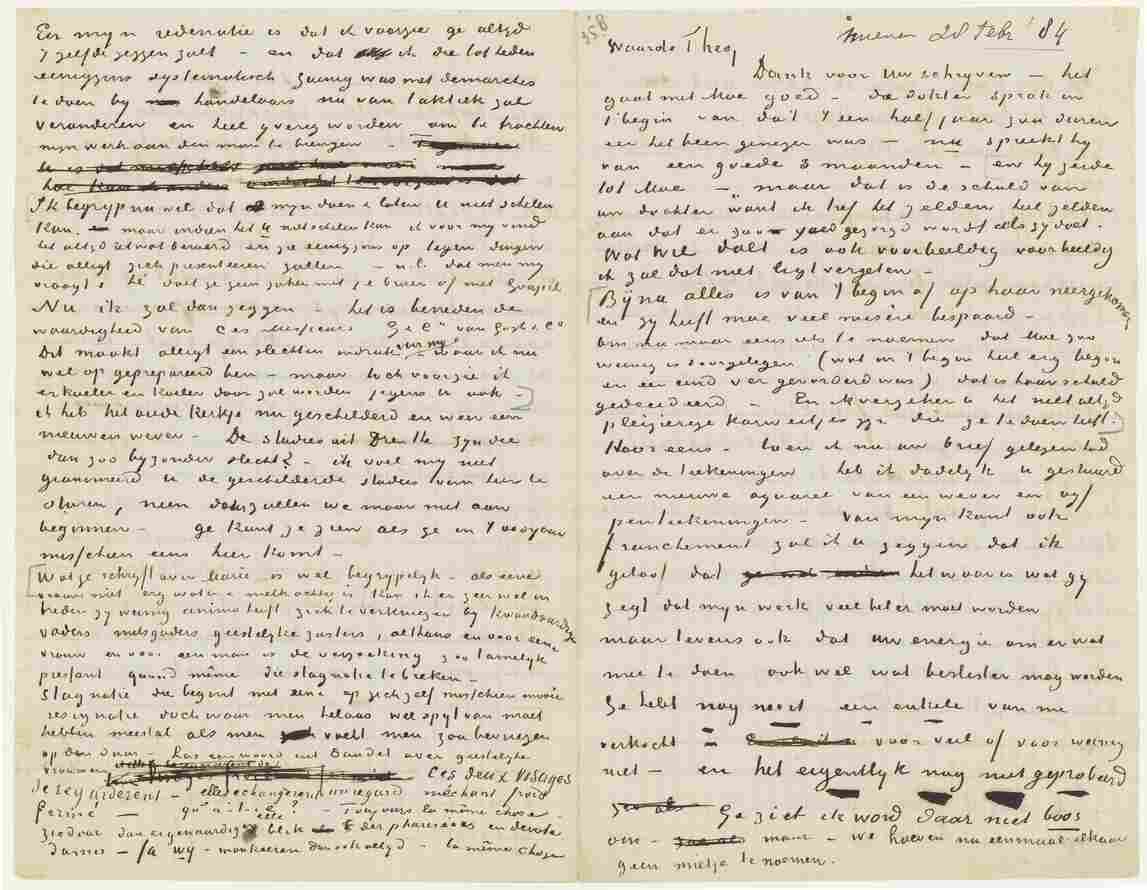 Een mijn redenatie is dat ik voorzie ge altijd
't zelfde zeggen zult – en dat ik die tot heden
eenigzins systematisch zuinig was met demarches
te doen by handelaars nu van taktiek zal
veranderen en heel yverig worden om te trachten
mijn werk aan den man te brengen –
Ik begryp nu wel dat mijn doen & laten U niet schelen
kan. maar indien het U niet schelen kan ik voor my vind
het altijd iet wat beroerd en zie eenigzins op tegen dingen
die alligt zich presenteeren zullen – n.l. dat men my
vraagt: hé doet ge geen zaken met je broer of met Goupil
Nu ik zal dan zeggen – het is beneden de
waardigheid van ces Messieurs G & Cie van Gogh & Co
Dit maakt alligt een slechten indruk van my – waar ik nu
wel op geprepareerd ben – maar toch voorzie ik
er koeler en koeler door zal worden jegens U ook –
ik heb het oude kerkje nu geschilderd en weer een
nieuwen wever – De studies uit Drenthe zyn die
dan zoo byzonder slecht? – ik voel my niet
geanimeerd U de geschilderde studies van hier te
sturen, neen daar zullen we maar niet aan
beginnen – ge kunt ze zien als ge in 't voorjaar
misschien eens hier komt –
Wat ge schryft over Marie is wel begrypelyk – als eene
vrouw niet erg water & melkachtig is kan ik er zeer wel in
treden zy weinig animo heeft zich te verknyzen by kwaadaardige
vaders mitsgaders geestelyke zusters, althans en voor eene
vrouw en voor een man is de verzoeking zoo tamelyk
pressant quand même die stagnatie te breken –
Stagnatie die begint met een op zich zelf misschien mooie
resignatie doch waar men helaas wel spyt van moet
hebben meestal als men voelt men zou bevriezen
op den duur – Las een woord uit Daudet over geestelyke
vrouwen Ces deux visages
se regardèrent – elles échangèrent un regard méchant froid
fermé – qu'a-t-elle? – Toujours la même chose –
ziedaar dan eigenaardige blik der phariseeen en devote
dames – ja wy – mankeeren dan ook altyd – la même chose
Nuenen 20 Febr '84
Waarde Theo,
Dank voor Uw schryven – het
gaat met Moe goed – de dokter sprak in
't begin van dat 't een half jaar zou duren
eer het been genezen was – nu spreekt hy
van een goede 3 maanden – en hy zeide
tot Moe – "maar dat is de schuld van
uw dochter want ik tref het zelden heel zelden
aan dat er zoo goed gezorgd wordt als zy doet.
Wat Wil doet is ook voorbeeldig voorbeeldig
ik zal dat niet ligt vergeten –
Byna alles is van 't begin af op haar neergekomen
en zy heeft Moe veel misère bespaard –
Om nu maar eens iets te noemen dat Moe zoo
weinig is doorgelegen (wat in 't begin heel erg begon
en een eind ver gevorderd was) dat is haar schuld
gedecideerd – En ik verzeker U het niet altyd
pleizierige karweitjes zyn die ze te doen heeft.
Hoor eens – toen ik nu uw brief gelezen had
over de teekeningen heb ik dadelyk U gestuurd
een nieuwe aquarel van een wever en vyf
penteekeningen – Van myn kant ook
franchement zal ik U zeggen dat ik
geloof dat het waar is wat gy
zegt dat myn werk veel beter moet worden
maar tevens ook dat uw energie om er wat
mee te doen ook wel wat beslister mag worden
Ge hebt nog nooit een enkele van me
verkocht – voor veel of voor weinig
niet – en het eigentlyk nog niet geprobeerd
Ge ziet ik word daar niet boos
over – maar – we hoeven nu eenmaal elkaar
geen mietje te noemen.
358